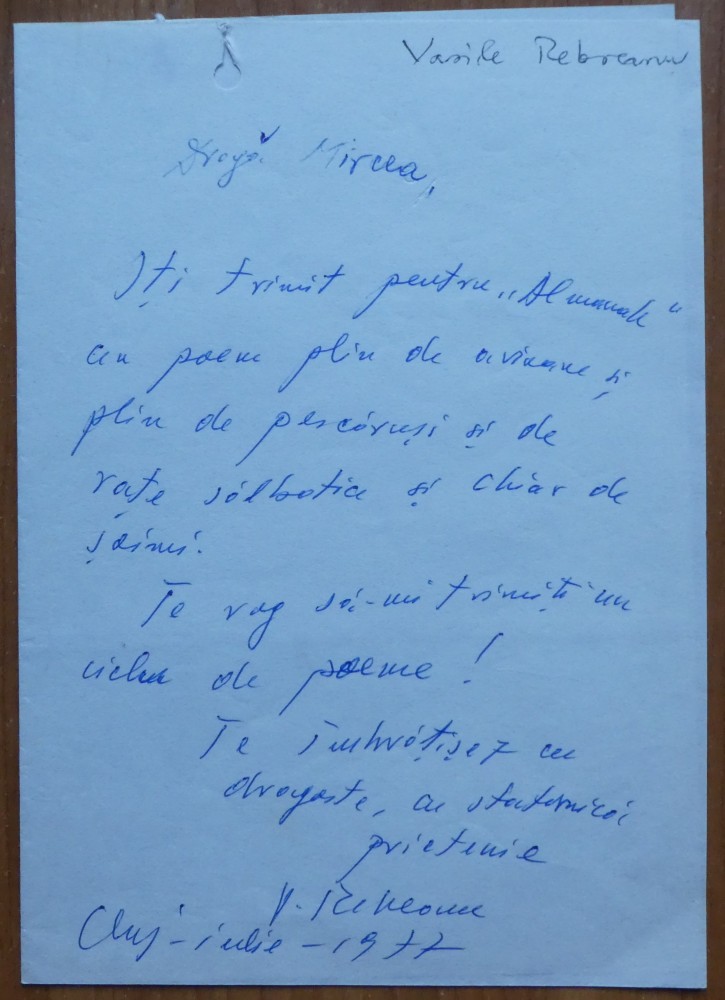 Vasile Rebreanu
Dragă Mircea,
Iți trimit pentru „Almanah“
un poem plin de avioane și
plin de pescăruși și de
rațe sălbatice și chiar de
șoimi.
Te rog să-mi trimiți un
ciclu de poeme!
Te îmbrățișez cu
dragoste, cu statornică
prietenie
V. Rebreanu
Cluj - iulie - 1977